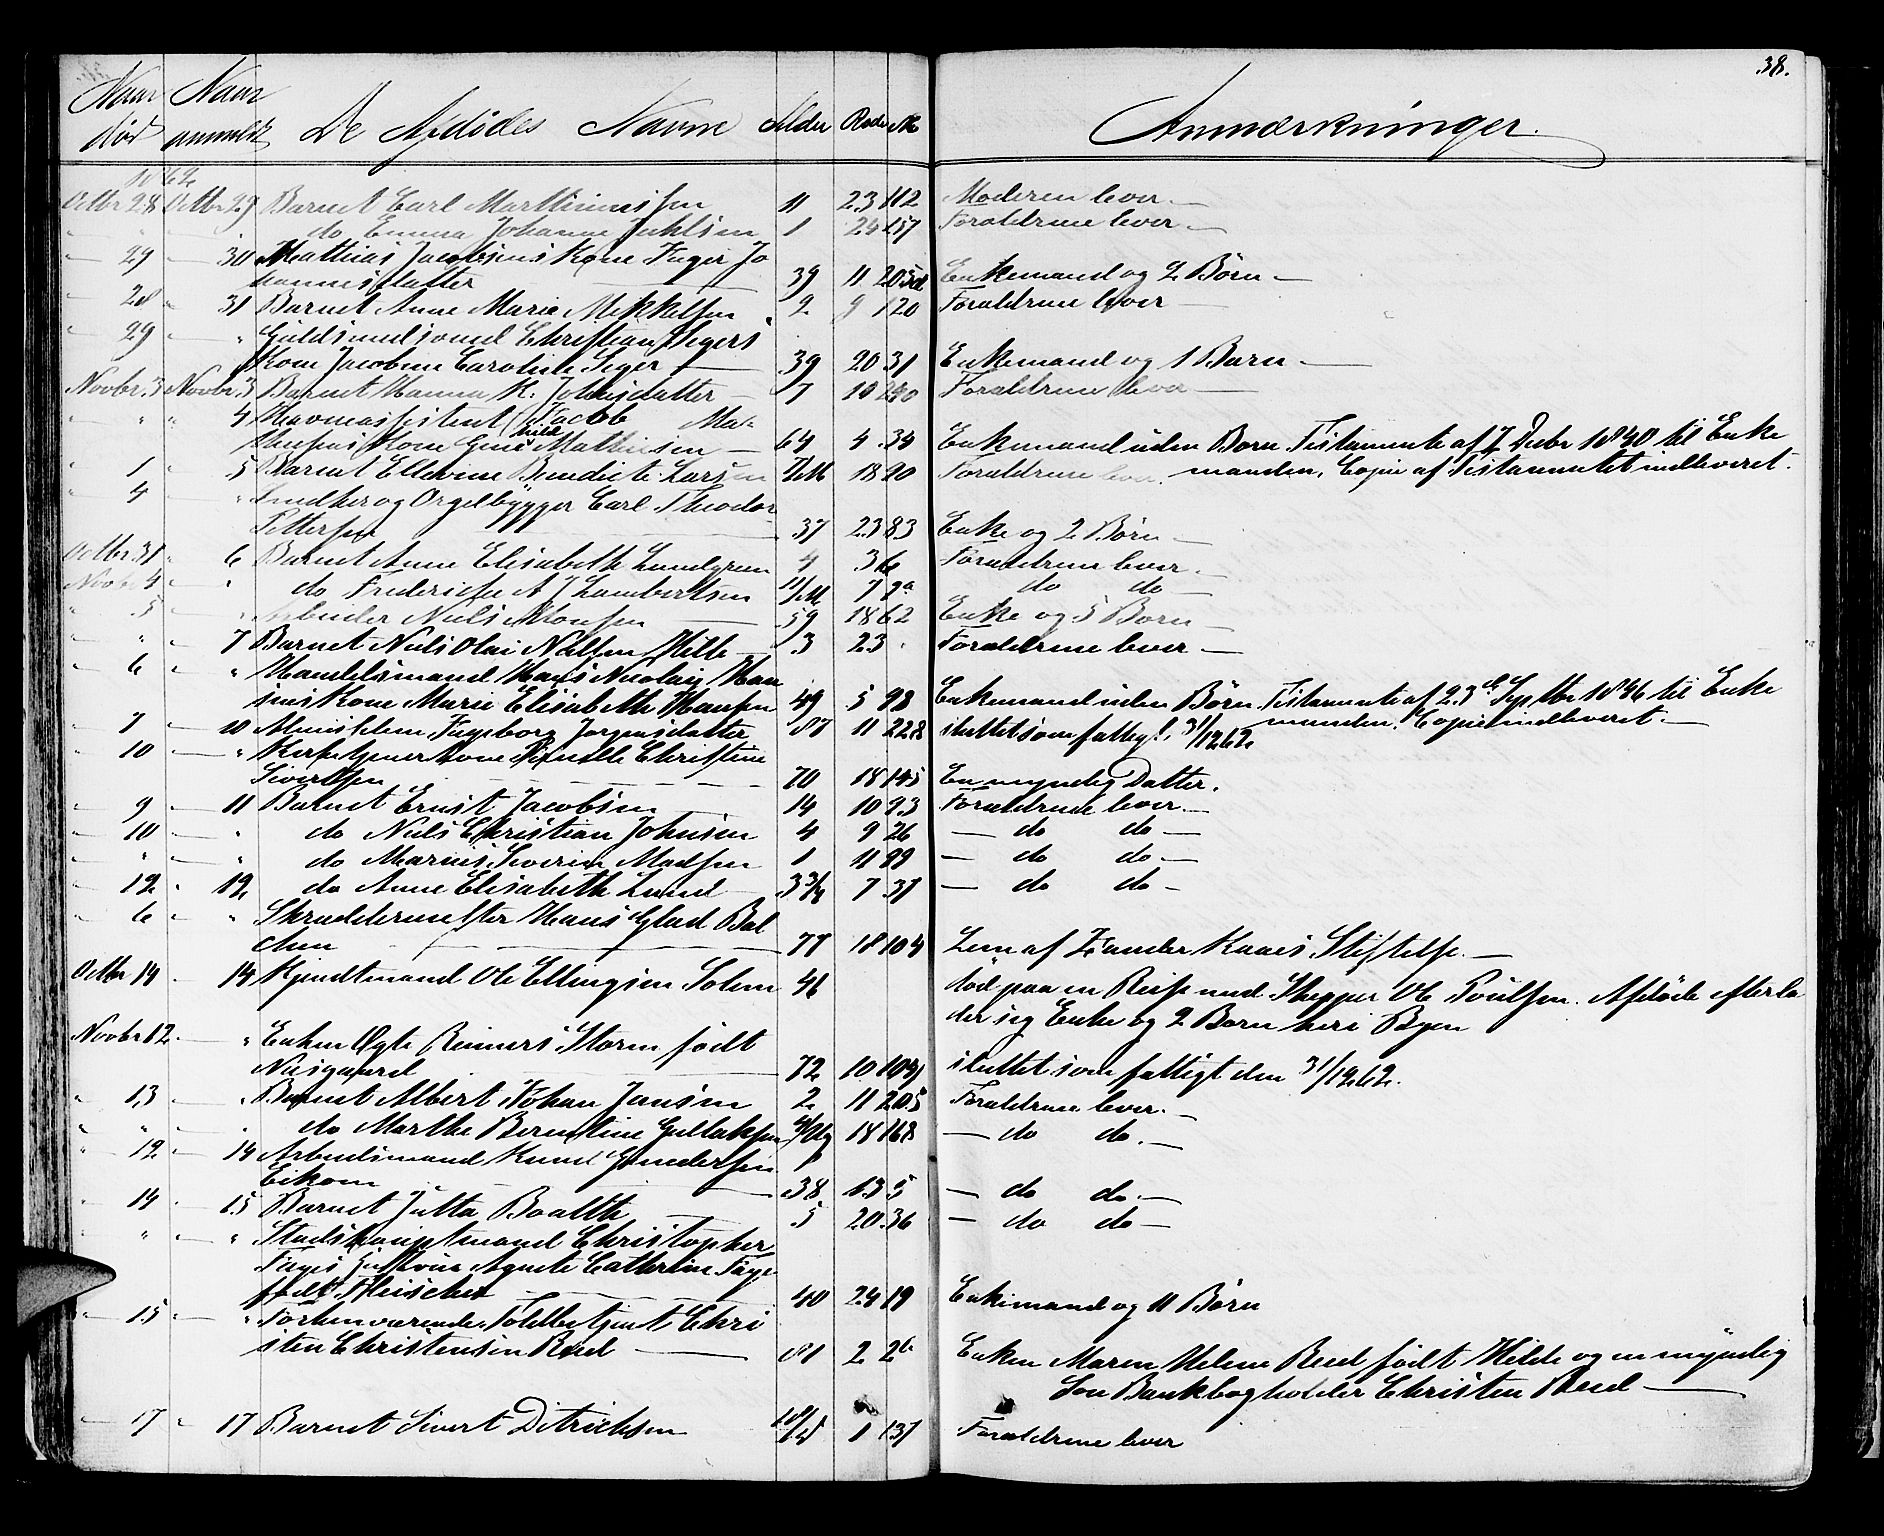 38.
Naar Naar
død anmeldt De Afdødes Navne Alder Rode No Anmærkninger.
1862
Octbr 28 Octbr 29 Barnet Carl Marthiniussen 11 23 112 Moderen lever —
" " do Emma Johanne 1 24 157 Forældrene lever —
— 29 — 30 Mathias Jacobsens Kone Inger Jo
hannesdatter 39 11 203 Enkemand og 2 Børn —
— 28 " 31 Barnet Anne Marie Mikkelsen 2 9 120 Forældrene lever —
— 29 — " Guldsmedsvend Christian Segers
Kone Jacobine Caroline Seger — 39 20 31 Enkemand og 1 Barn —
Novbr. 3 Novbr. 3 Barnet Hanna K. Johnsdatter — 7 10 Forældrene lever —
" " 4 Havneassistent Jacob Ma-
thiesens Kone Mathiesen — 64 4 34 Enkemand uden Børn. Testamente af 7 Decbr 1840 til Enke
— 1 — 5 Barnet Ellevine Benedicte Larsen 7/M 18 20 Forældrene lever. manden. Copie af Testamentet indleveret.
" 4 " Snedker og Orgelbygger Carl Theodor
Pettersen — 37 23 83 Enke og 2 Børn —
Octbr. 31 " 6 Barnet Anne Elisabeth Lundgreen 4 3 6 Forældrene lever. —
Novbr 4 — " do Fredericke A J Lambertsen 11/M 7 2a do do —
" 5 — " Arbeider Niels Monsen — 59 18 62 Enke og 5 Børn —
— " — 7 Barnet Niels Olai Nilsen Hille — 3 23 " Forældrene lever —
— 6 — " Handelsmand Hans Nicolay Han
sens Kone Marie Elisabeth Hansen 49 5 98 Enkemand uden Børn Testamente af 23de Septbr 1846 til Enke
— 7 — 10 Almisselem Ingeborg Jørgensdatter 87 11 228 sluttet som fattigt. 31/12 62 manden. Copie indleveret. —
— 10 — " Kone Pernille Christine
Sivertsen — 70 18 145 En myndig Datter.
" 9 — 11 Barnet Ernst Jacobsen — 14 10 93 Forældrene lever —
— 10 — " do Niels Christian Johnsen 4 9 26 — do do —
— " — " do Marius Severin Madsen 1 11 89 — do do —
— 12 " 12 do Anne Elisabeth Lund — 3 3/4 7 37 — do do —
" 6 — " Skræddermester Hans Glad Bal
chen — 77 18 104 Lem af Zander Kaaes Stiftelse. —
Octbr 14 — 14 Kjendtmand Ole Ellingsen Solem 46 død paa en Reise med Skipper Ole Poulsen. Afdøde efterla
der sig Enke og 2 Børn her i Byen
Novbr 12 — " Enken Ogte Reiners Storm født
Nusgaard 72 10 104 sluttet som fattigt den 31/12 62.
" 13 — " Barnet Albert Johan Jansen 2 11 205 Forældrene lever. —
" " " do Marthe Berentine Gullaksen 18 168 — do do. —
" 12 — 14 Arbeidsmand Knud
Eikom — 38 13 5 — do do. —
" 14 — 15 Barnet Jutta Boalth — 5 20 36 — do do —
" " — " Stadshauptmand Christopher
Fayes Hustrue Agnete Cathrine Faye
født Fleischer — 40 24 19 Enkemand og 11 Børn
" 15 — " Forhenværende Toldbetjent Chri
sten Christensen Beed — 81 2 2b Enken Maren Helene Beed født Hilde og en myndig
Søn Bankbogholder Christen Beed —
— 17 — 17 Barnet Sivert Ditrichsen 1 131 Forældrene lever